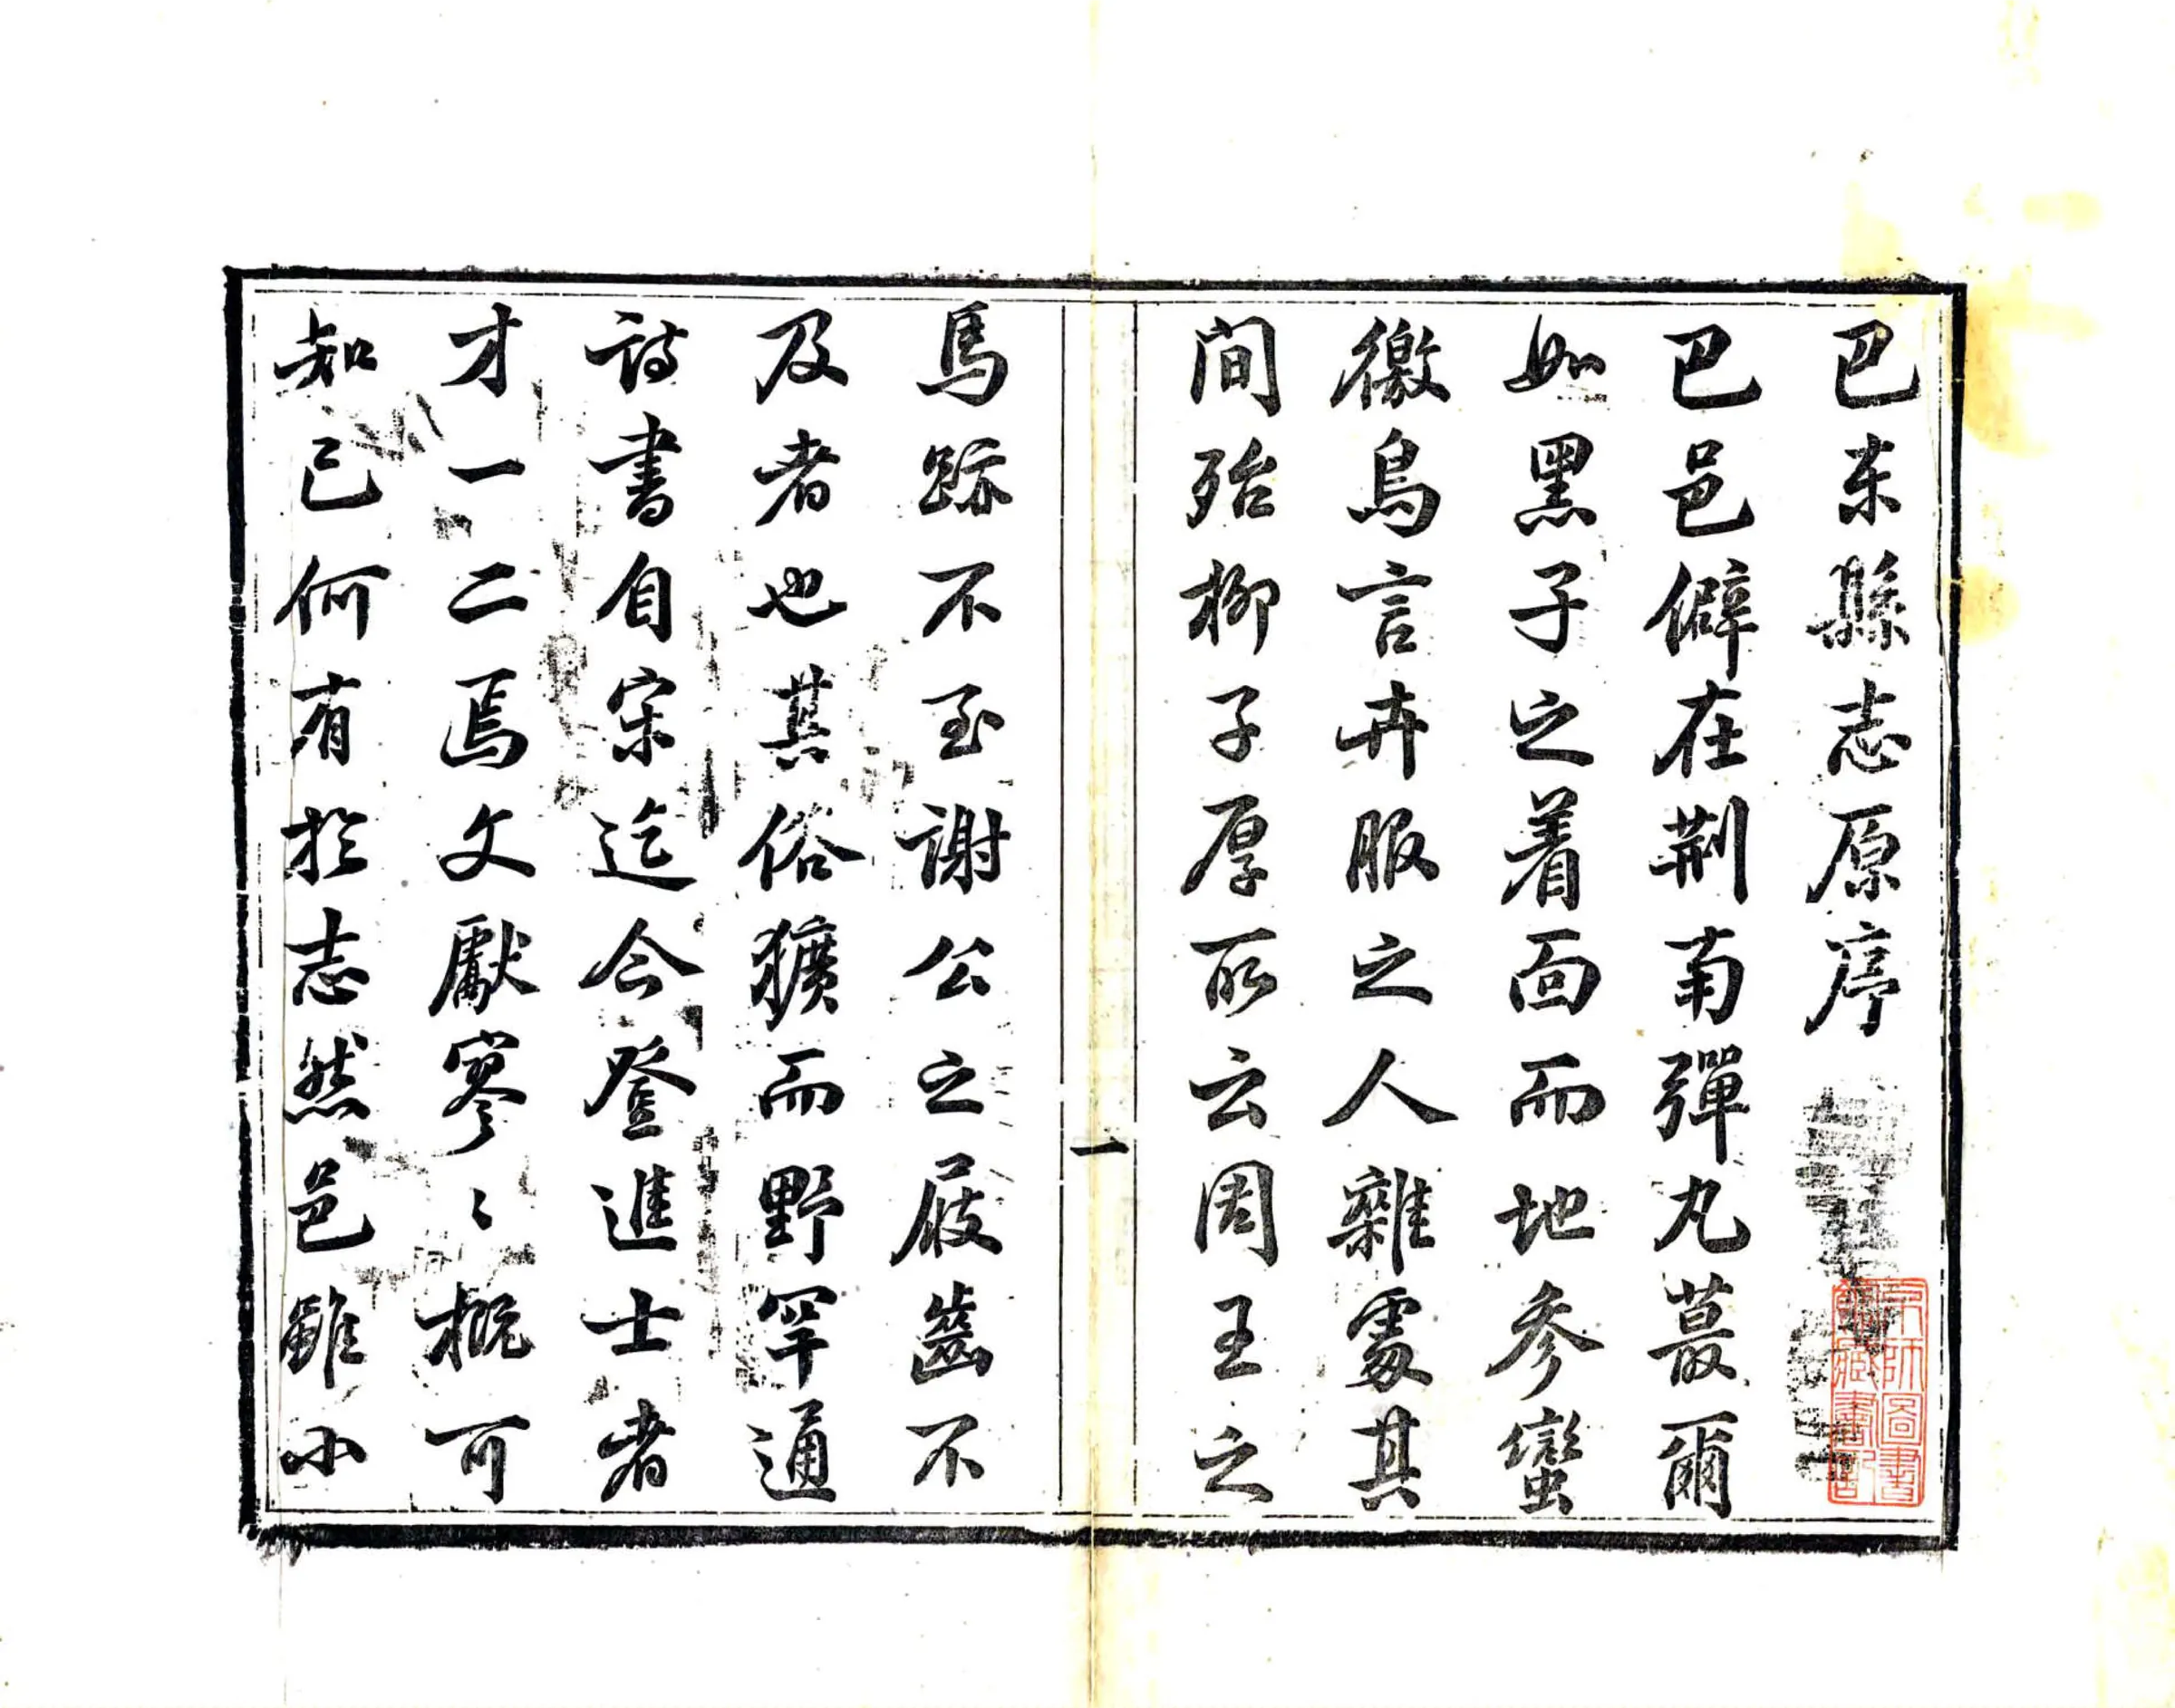 巴东縣志原序
巴邑僻在荆南彈丸蕞爾
如黑子之着面而地参蠻
徼鳥言卉服之人雜處其
間殆柳子厚所云周王之
馬跡不至謝公之屐齒不
及者也其俗獷而野罕通
詩書自宋迄今登進士者
才一二焉文獻寥〻概可
知已何有於志然邑雖小
一
京師圖書館藏書記